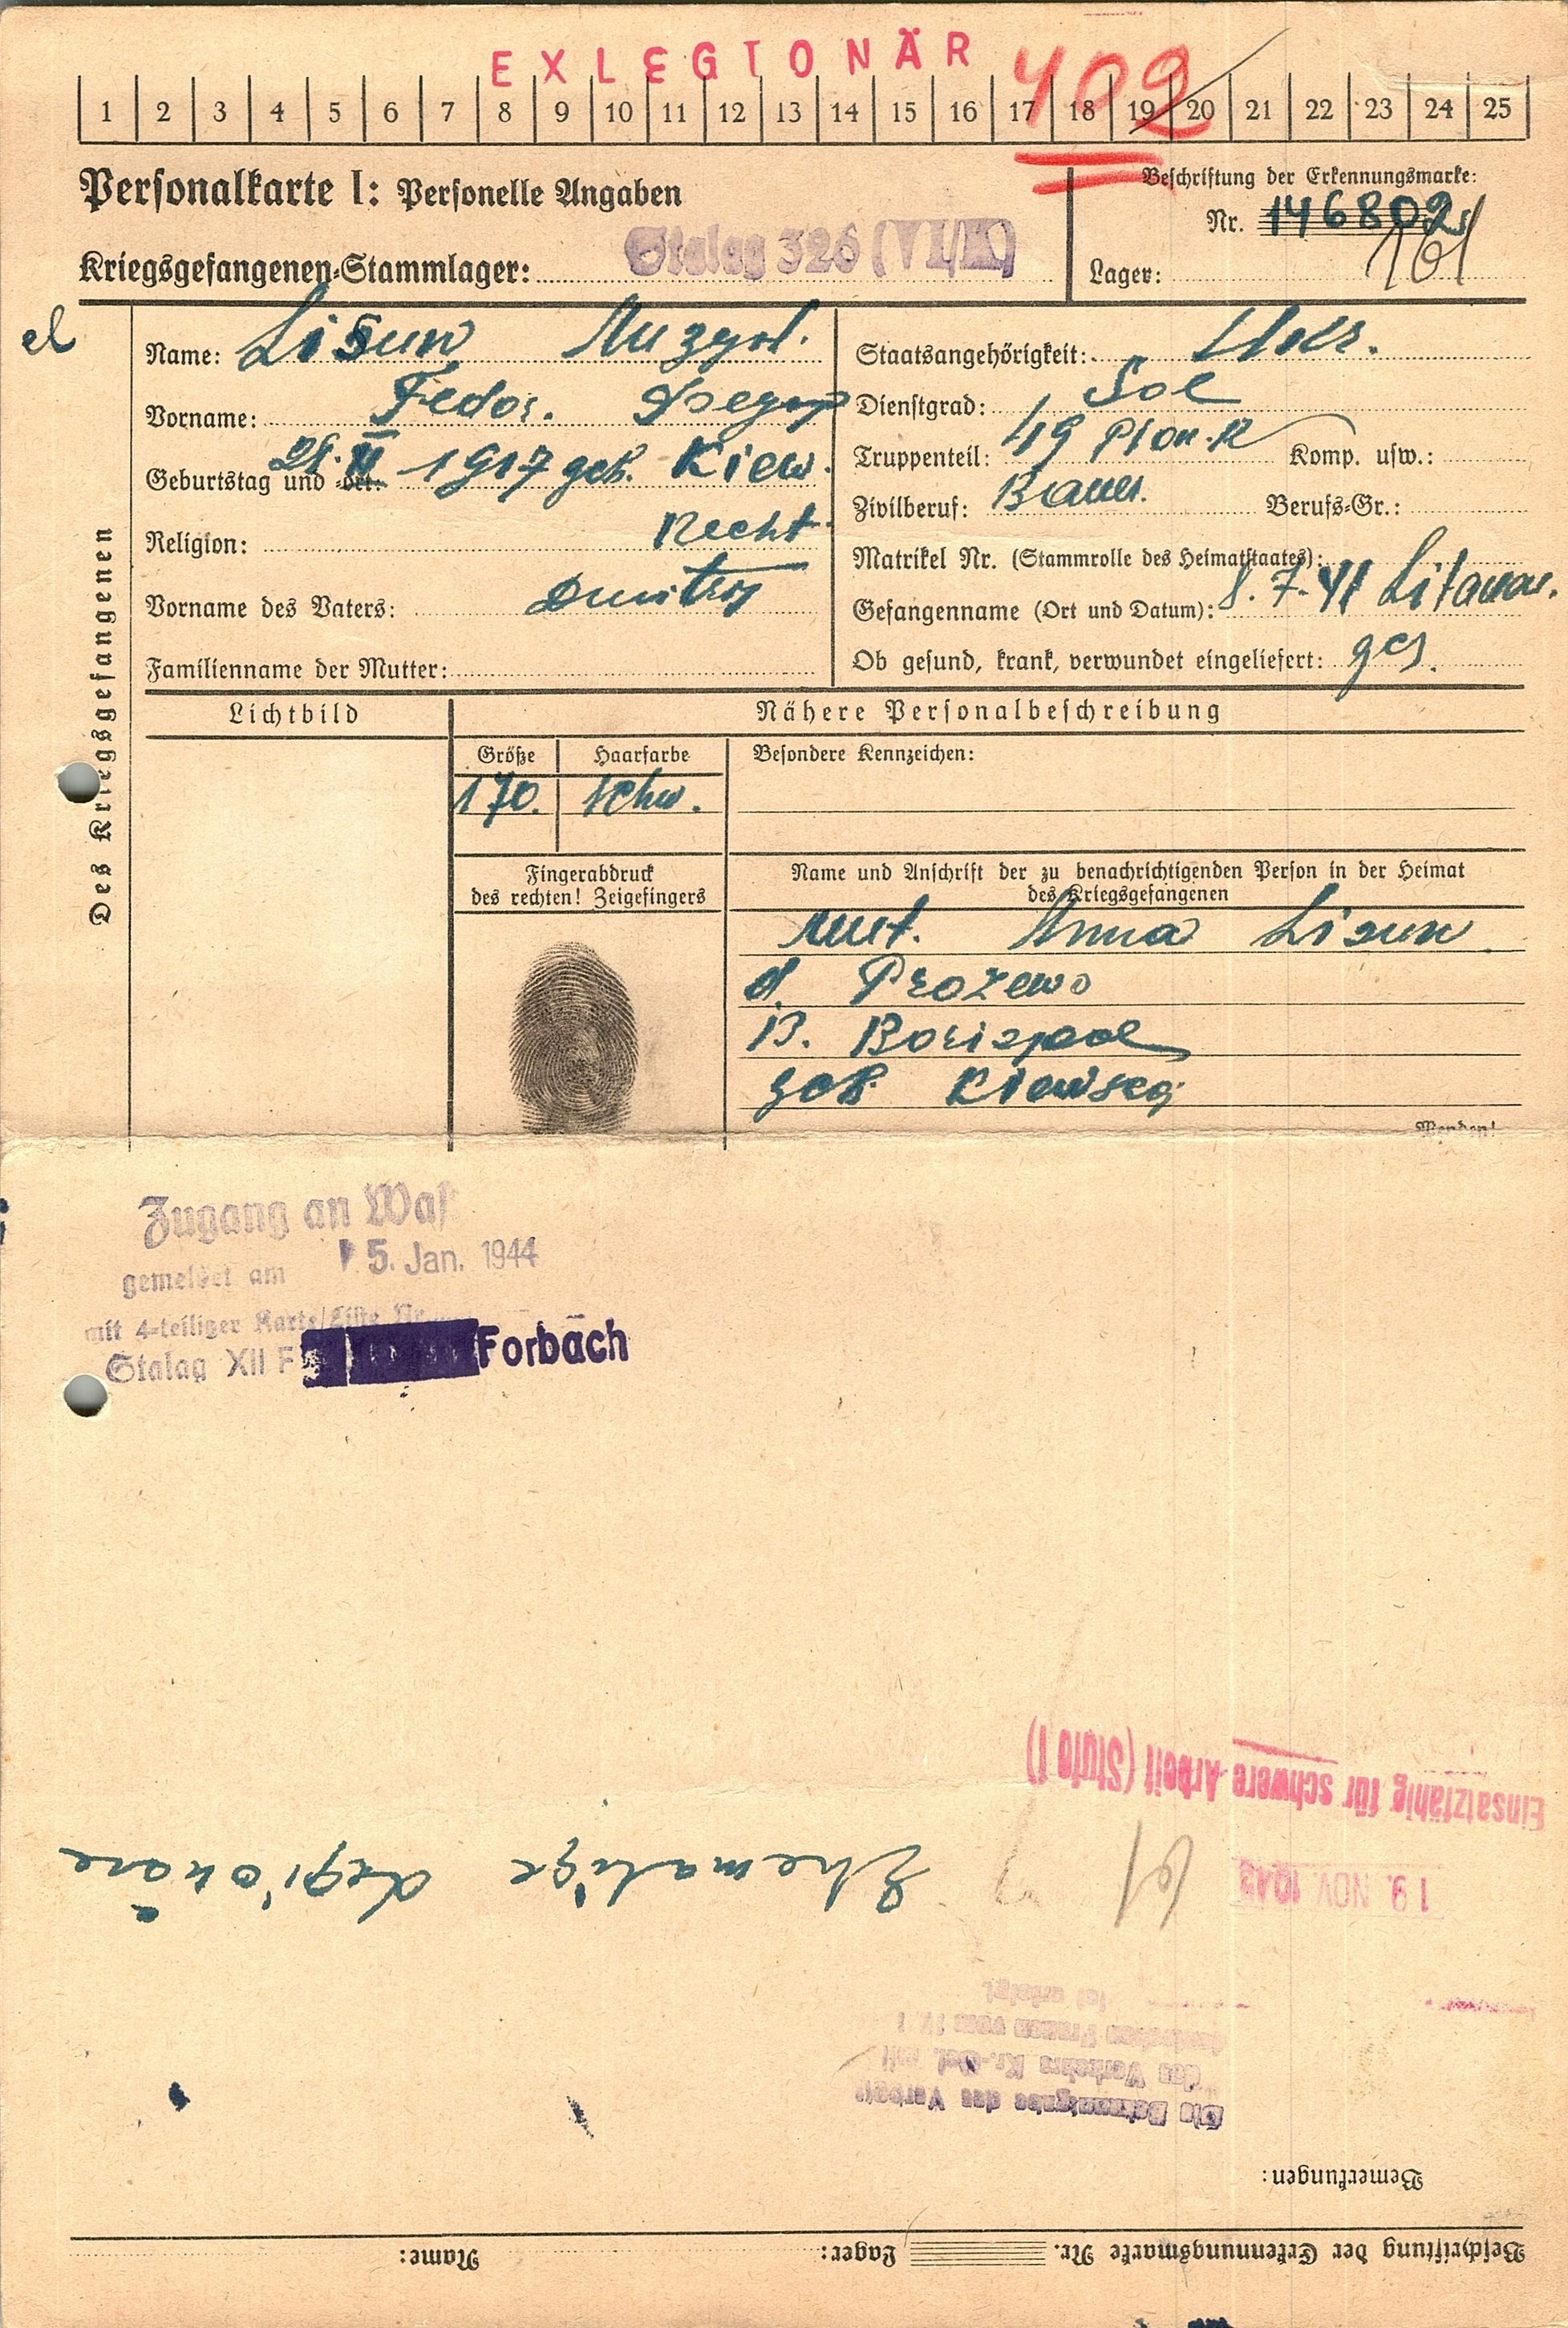 EXLEGIONÄR 402
1 2 3 4 5 6 7 8 9 10 11 12 13 14 15 16 17 18 19 20 21 22 23 24 25
Personalkarte I: Personelle Angaben
Beschriftung der Erkennungsmarke:
Nr. 146802
161
Kriegsgefangenen-Stammlager: Stalag 326 (VI/K)
Lager:
el
Des Kriegsgefangenen
Name: Lisun
Vorname: Fedor.
Geburtstag und -ort: 1917 geb. Kiew.
Religion: Recht.
Vorname des Vaters: Dmitroj
Familienname der Mutter:
Staatsangehörigkeit: Ukr.
Dienstgrad: Sol
Truppenteil: 49 Pion. R Komp. usw.:
Zivilberuf: Bauer. Berufs-Gr.:
Matrikel Nr. (Stammrolle des Heimatstaates):
Gefangenname (Ort und Datum): 8. 7. 41 Litauen.
Ob gesund, krank, verwundet eingeliefert: ges.
Lichtbild
Nähere Personalbeschreibung
Größe Haarfarbe Besondere Kennzeichen:
170. schw.
Fingerabdruck
des rechten! Zeigefingers
Name und Anschrift der zu benachrichtigenden Person in der Heimat
des Kriegsgefangenen
Mut. Anna Lisun
d. Prozewo
R. Borispol
geb. Kiewskoj
Wenden!
Zugang an Wast
gemeldet am 5. Jan. 1944
mit 4-teiliger Karte/Liste Nr.
Stalag XII F Forbach
Beschriftung der Erkennungsmarke Nr. Lager: Name:
Bemerkungen:
Die Bekanntgabe des Verbots
des Verkehrs Kr.-Gef. mit
deutschen Frauen vom
ist erfolgt.
19. NOV. 1943
61
Ehemalige Legionäre
Einsatzfähig für schwere Arbeit (Stufe I)